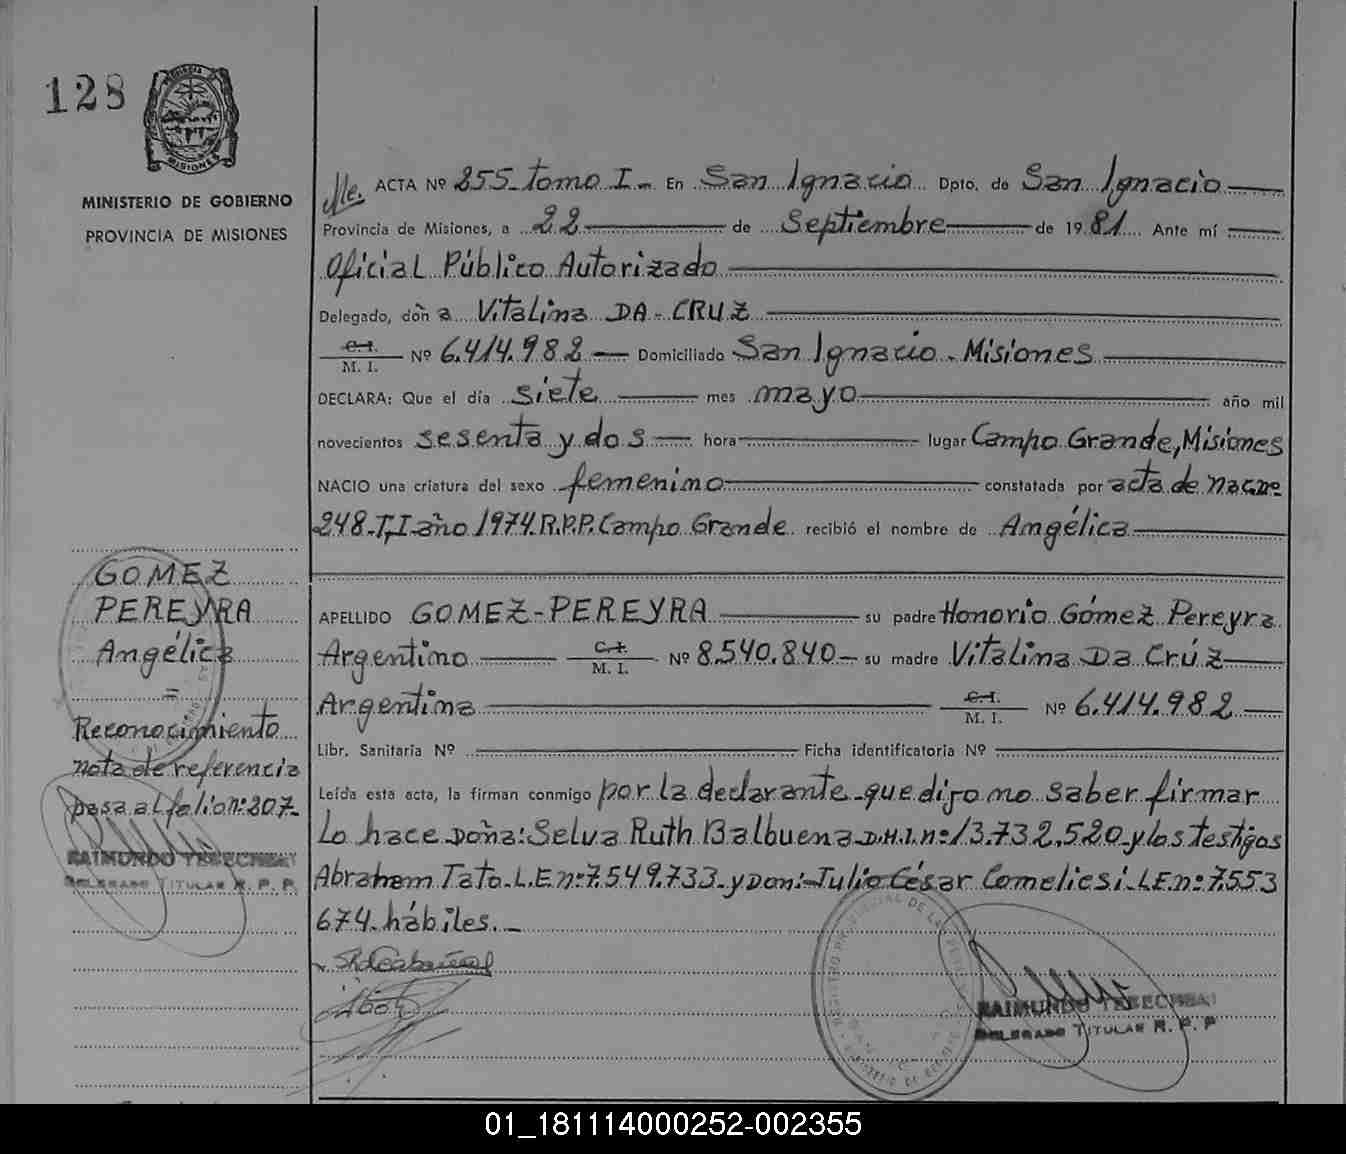 128
PROVINCIA DE
MISIONES
MINISTERIO DE GOBIERNO
PROVINCIA DE MISIONES
ACTA Nº 255-tomo I.- En San Ignacio Dpto. de San Ignacio
Provincia de Misiones, a 22 de Septiembre de 1981. Ante mí
Oficial Público Autorizado
Delegado, doña Vitalina DA-CRUZ
C.I.
M. I. Nº 6.414.982 Domiciliado San Ignacio - Misiones
DECLARA: Que el día siete mes mayo año mil
novecientos sesenta y dos hora lugar Campo Grande, Misiones
NACIO una criatura del sexo femenino constatada por acta de nac.nº
248-T,I-año 1974.R.P.P. Campo Grande recibió el nombre de Angélica
APELLIDO GOMEZ-PEREYRA su padre Honorio Gómez Pereyra
Argentino C.I. M. I. Nº 8.540.840- su madre Vitalina Da Crúz
Argentina C.I. M. I. Nº 6.414.982
Libr. Sanitaria Nº Ficha identificatoria Nº
Leída esta acta, la firman conmigo por la declarante-que dijo no saber firmar
Lo hace Doña: Selva Ruth Balbuena D.N.I.nº 13.732.520-y los testigos
Abraham Tato-L.E.nº 7.549.733-y Don:-Julio César Comelicsi-L.E.nº 7.553
674-hábiles.-
GOMEZ
PEREYRA
Angélica
=
Reconocimiento
nota de referencia
pasa al folio nº 207-
RAIMUNDO
DELEGADO TITULAR R. P. P.
REGISTRO PROVINCIAL DE LAS
RAIMUNDO
DELEGADO TITULAR R. P. P
01_181114000252-002355